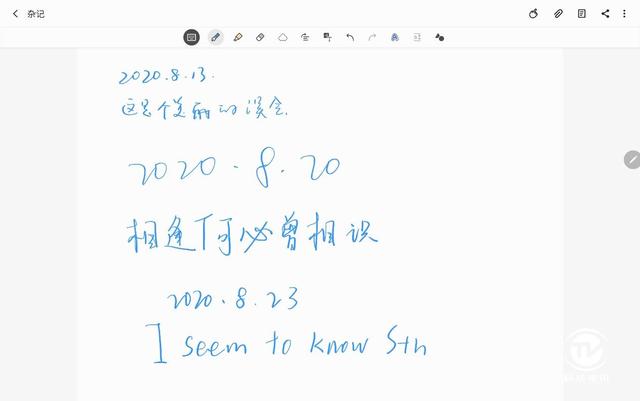 杂记
2020.8.13.
这是个美丽的误会.
2020.8.20
相逢何必曾相识
2020.8.23
I seem to know Sth